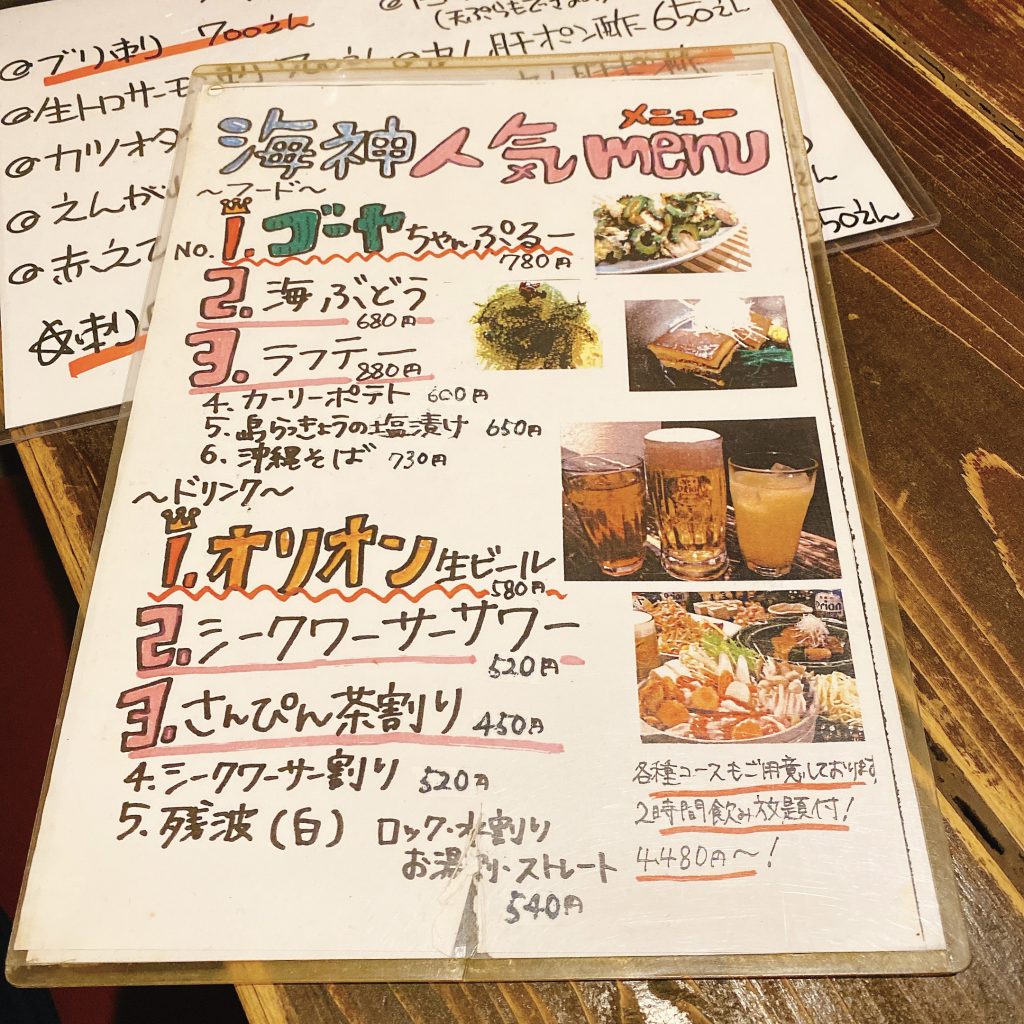 (天ぷらもできます)
@ブリ刺 700えん
肝ポン酢 650えん
@生トロサーモ
@カツオタ
@えんが
@赤えビ
刺
50えん
海神人気menu
メニュー
～フード～
No.1.ゴーヤちゃんぷるー
780円
2.海ぶどう
680円
3.ラフテー
880円
4.カーリーポテト 600円
5.島らっきょうの塩漬け 650円
6.沖縄そば 730円
～ドリンク～
1.オリオン生ビール
580円
2.シークワーサーサワー
520円
3.さんぴん茶割り 450円
4.シークワーサー割り 520円
5.残波(白) ロック・水割り
お湯割・ストレート
540円
Orion
各種コースもご用意しております
2時間飲み放題付!
4.480円～!